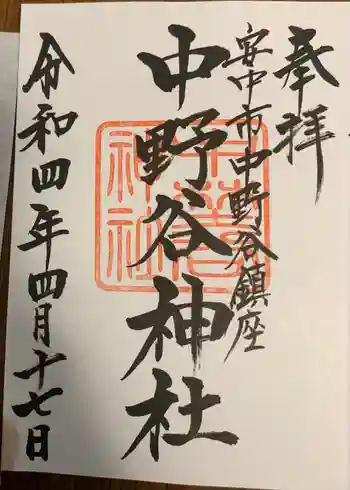 奉拝
安中市中野谷鎮座
中野谷神社
令和四年四月十七日